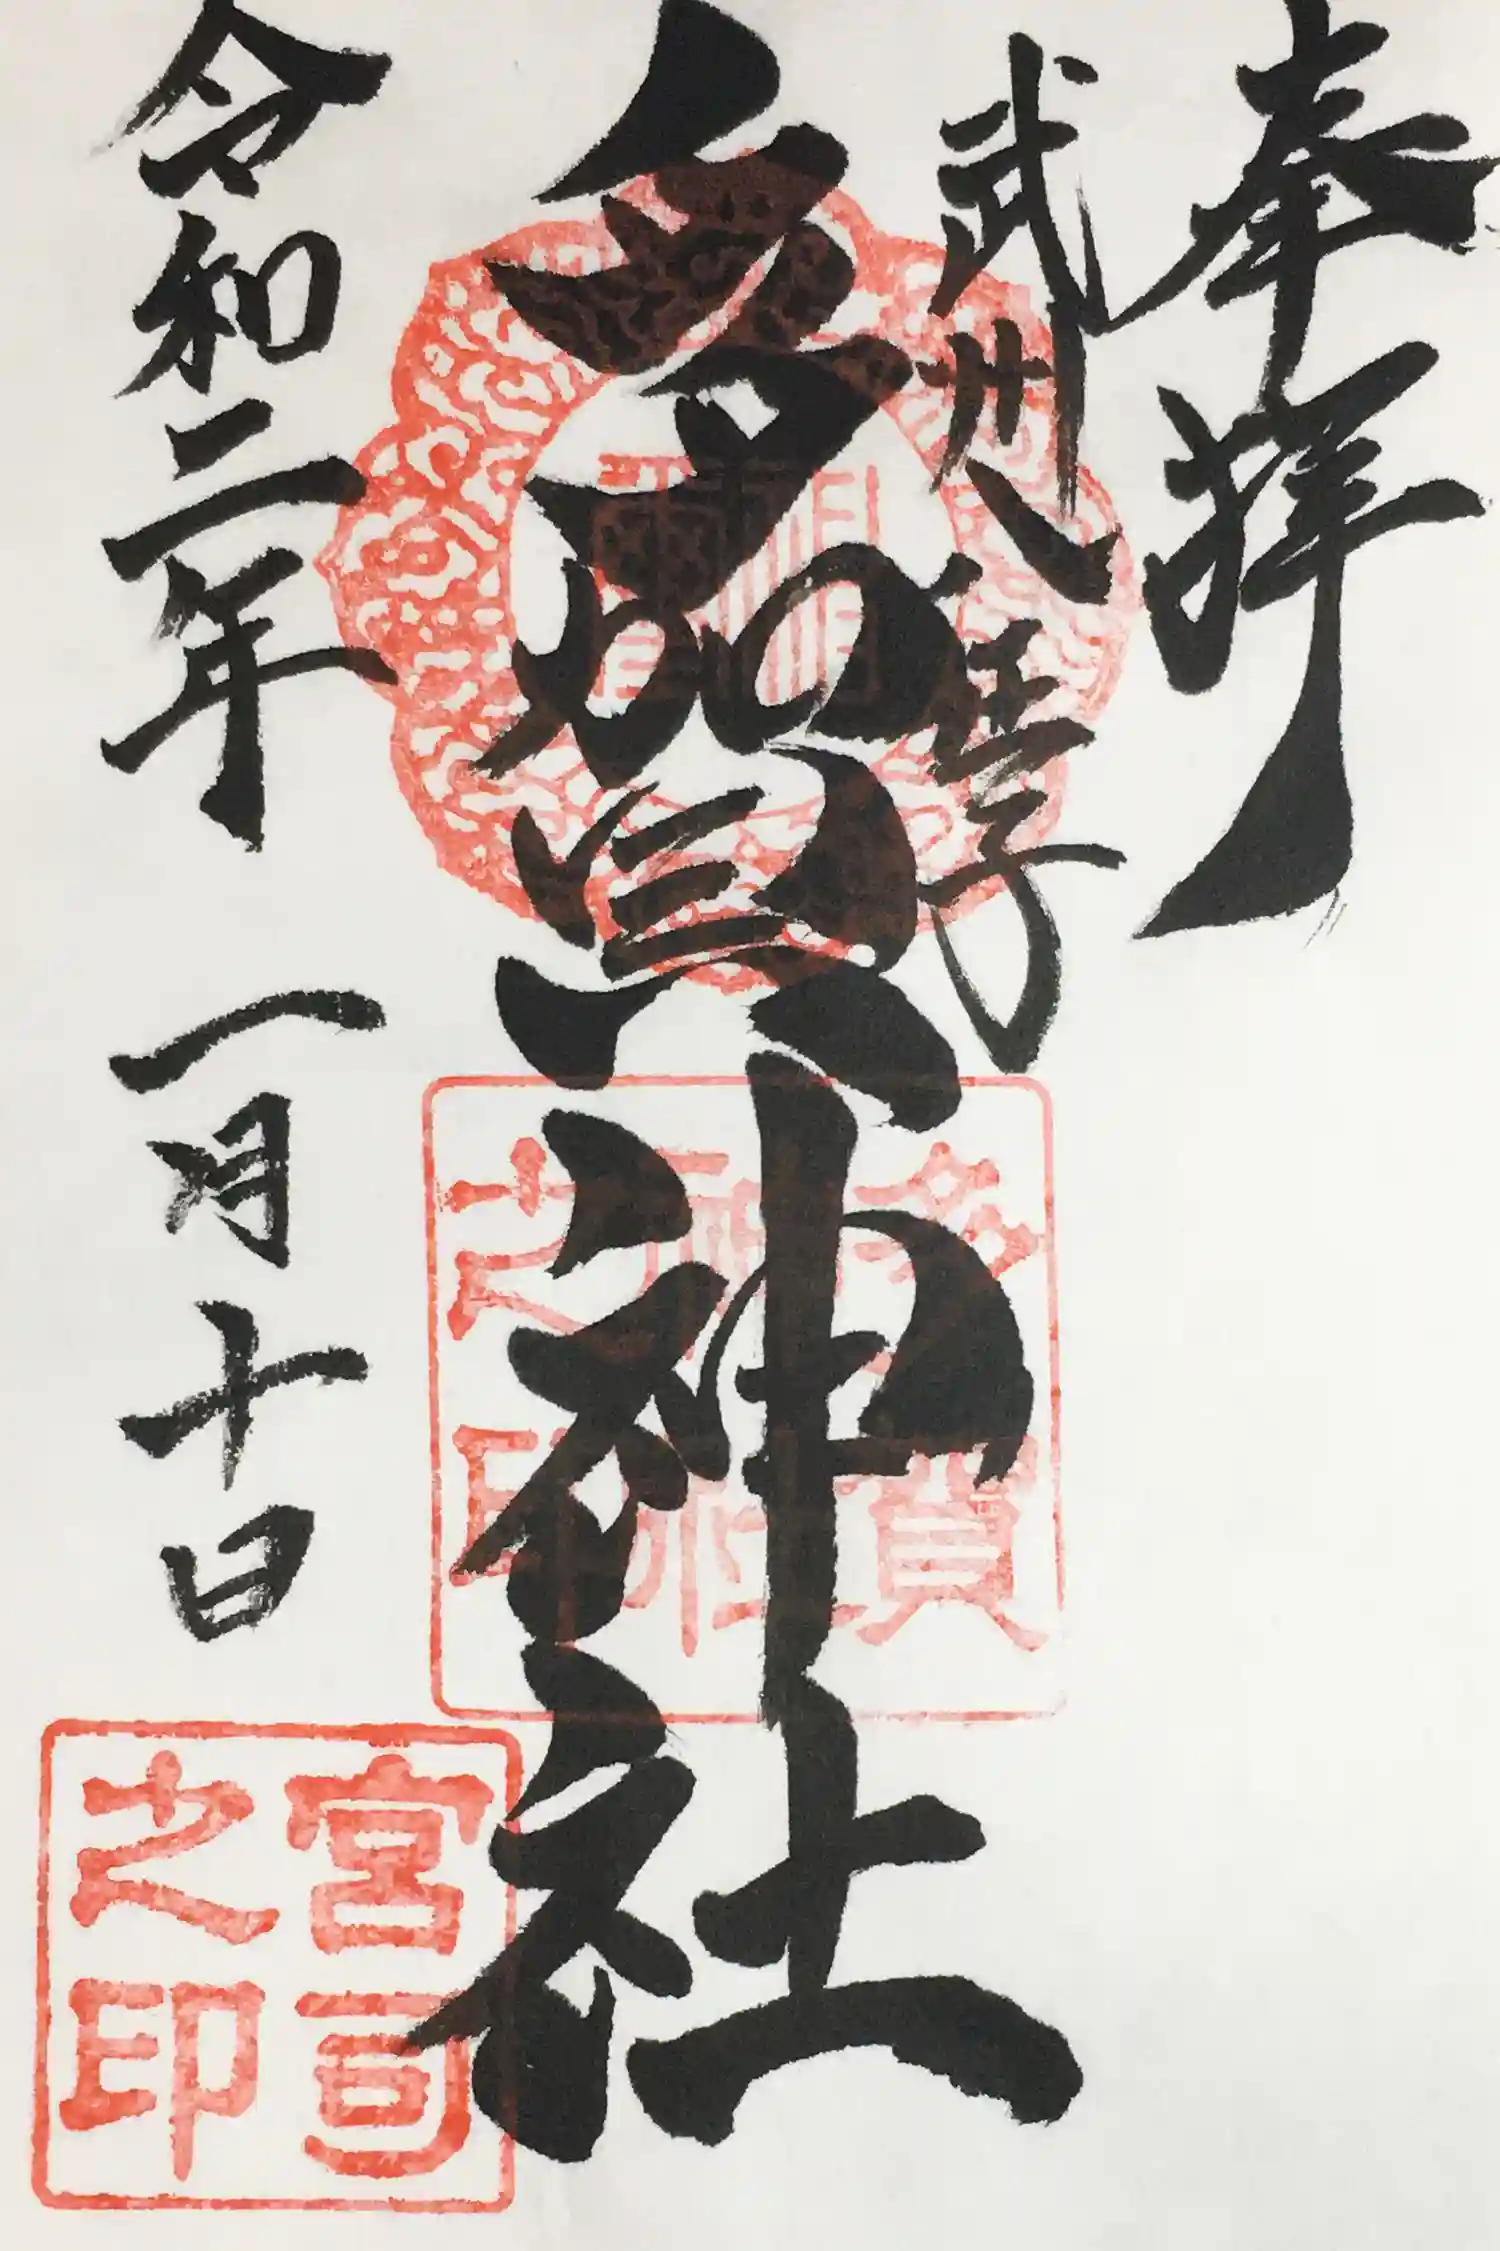 奉拝
武州八王子
多賀神社
令和二年 一月十日
多賀
神社
之印
宮司
之印